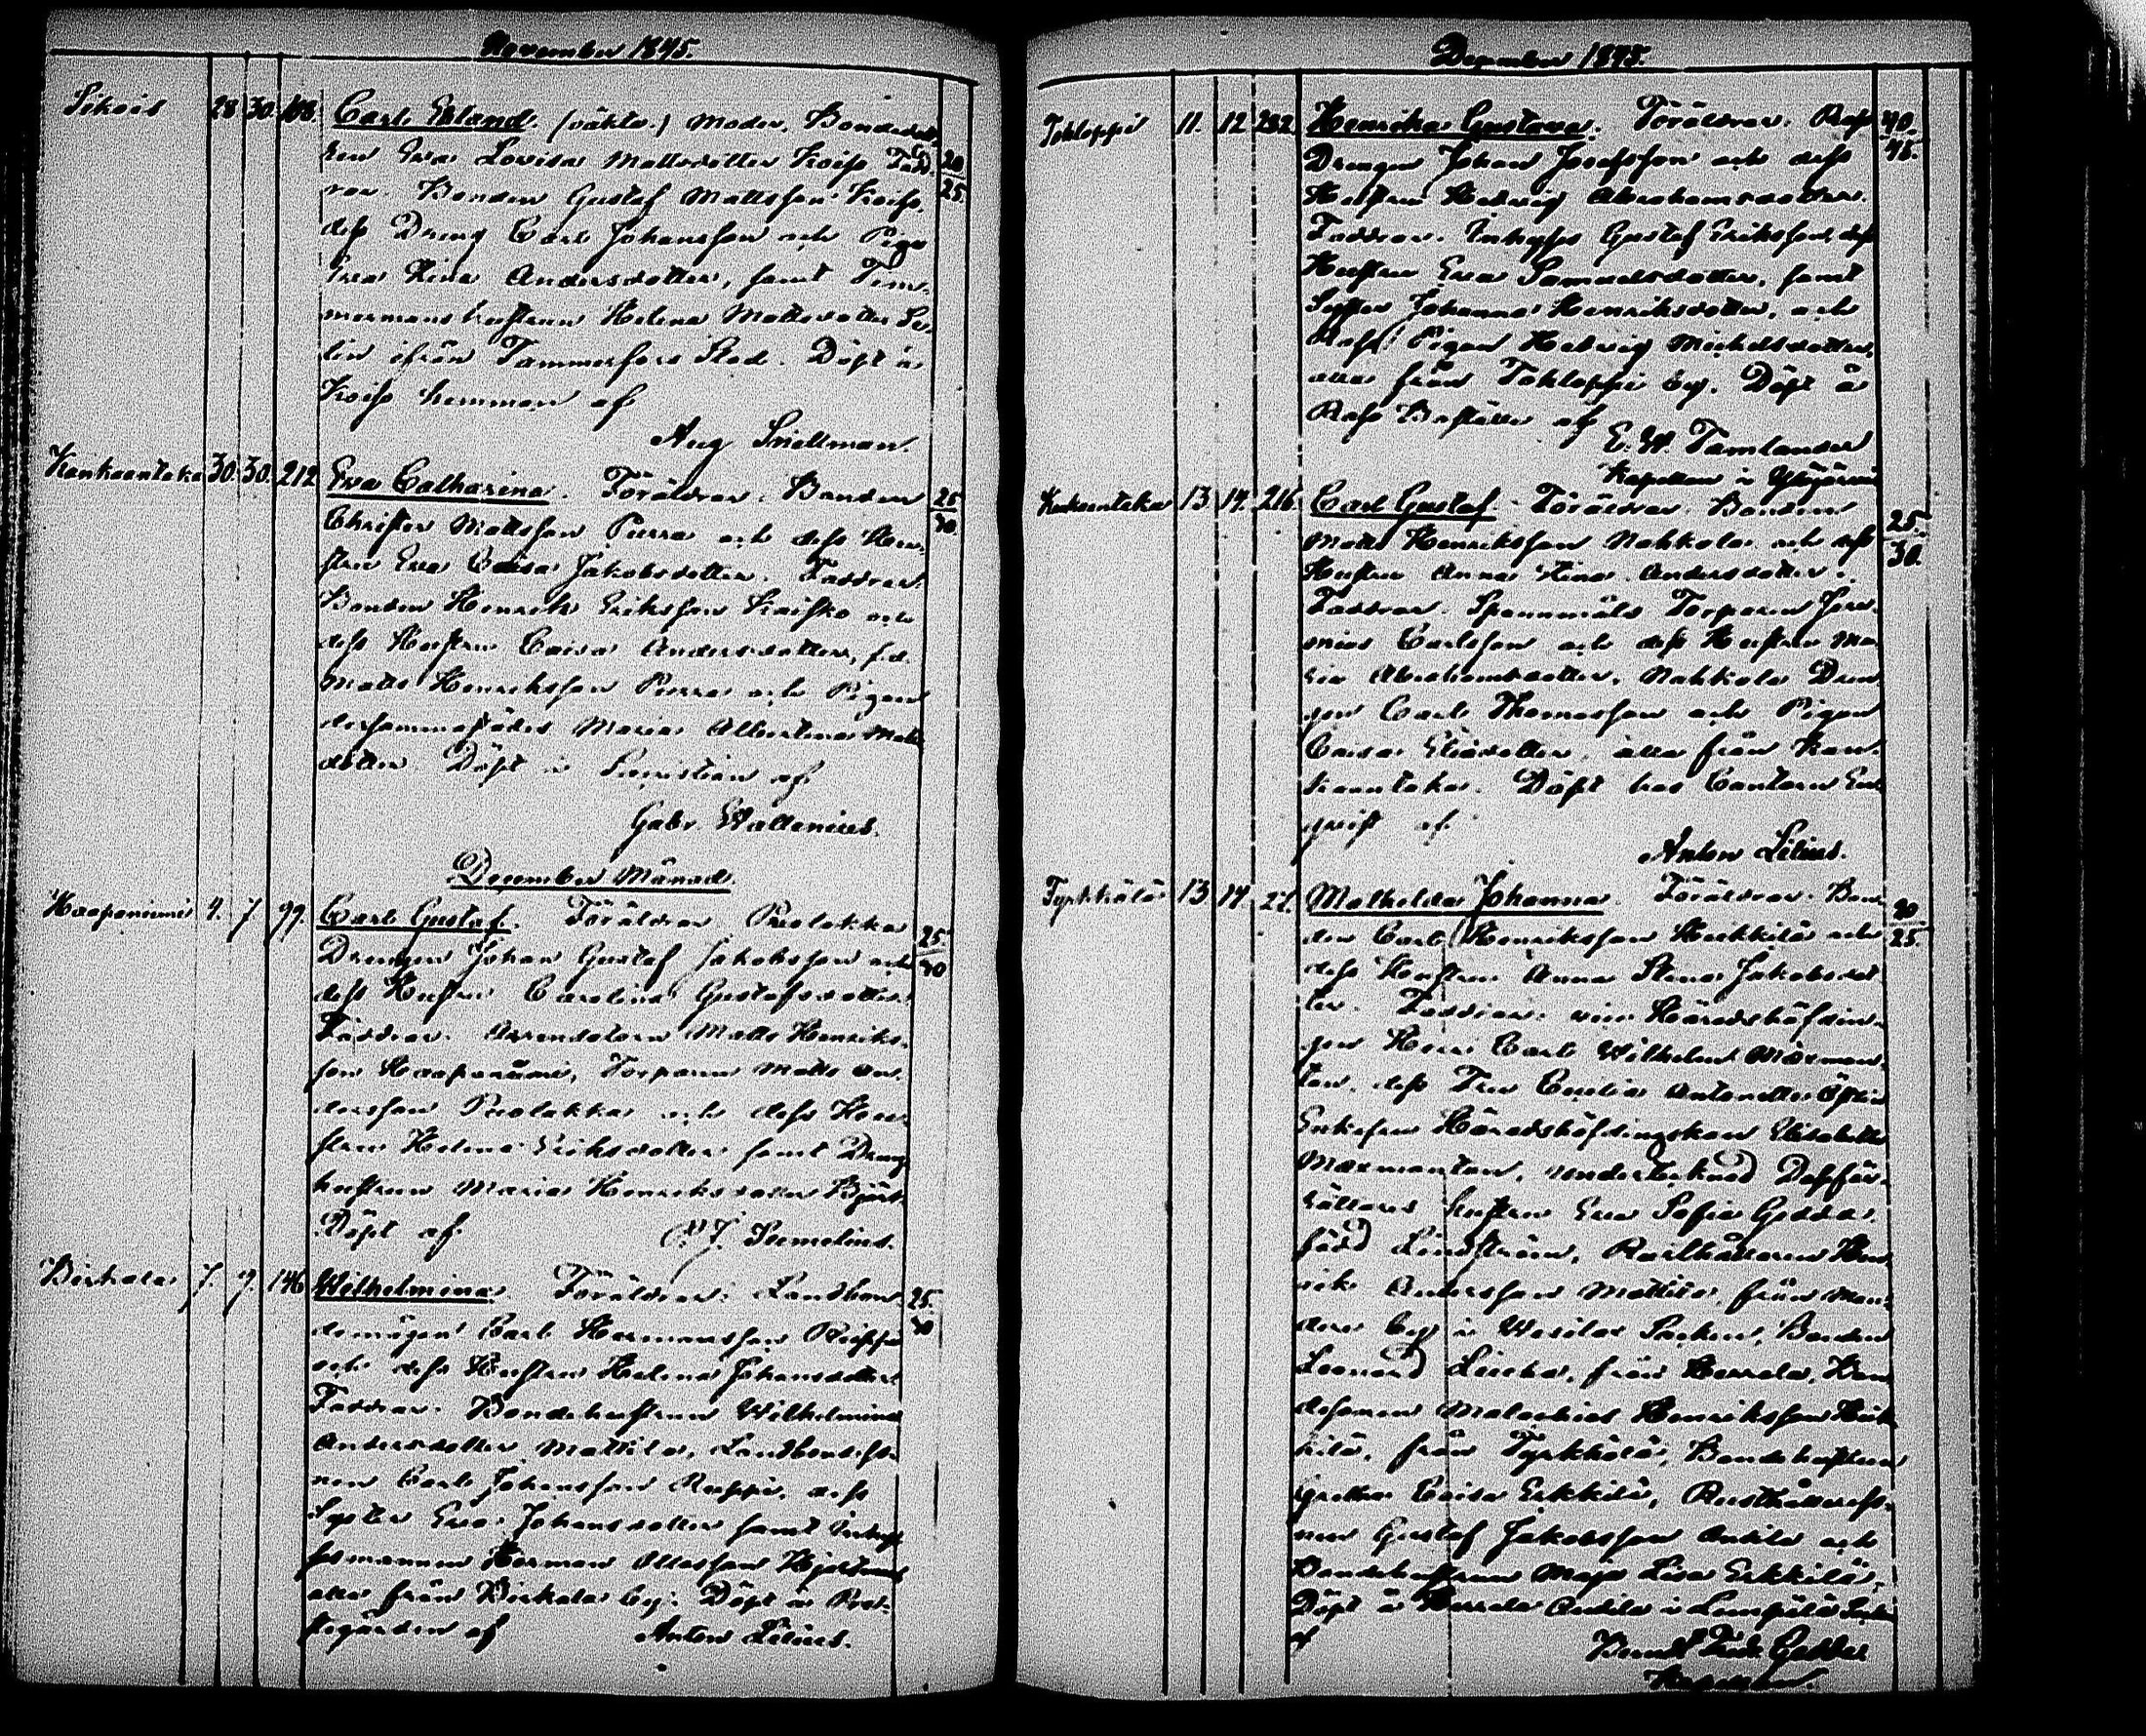 November 1845.
Sikois 28 30. 108. Carl Eklund. (oäkta.) Moder, Bondedot
ren Eva Lovisa Mattsdotter Koiso, Fadd 20
rar. Bonden Gustaf Mattsson Koiso, 25.
dess Dreng Carl Johansson och Piga
Eva Stina Andersdotter, samt Tim-
mermans hustrun Helena Mattsdotter
lin ifrån Tammerfors Stad. Döpt å
Koiso hemman af
Aug Snellman.
Kankaantaka 30. 30. 212 Eva Catharina. Föräldrar. Bonden 25
Christer Mattsson Purra och dess Hu- 30.
stru Eva Caisa Jakobsdotter. Faddrar.
Bonden Henrik Eriksson och
dess Hustru Caisa Andersdotter,
Matts Henriksson Purra och Pigan
dersammastädes Maria Albertina Matts
dotter. Döpt i Sacristian af
Gabr. Wallenius.
December Månad.
Haapaniemi 4. 7 99. Carl Gustaf. Föräldrar Puolakka 25.
Drengen Johan Gustaf Jakobsson och 30
dess Hustru Carolina Gustafsdotter.
Faddrar. Arrendatorn Matts Henriks-
son Haapaniemi, Torparen Matts An-
dersson Puolakka och dess Hu-
stru Helena Eriksdotter samt Dreng
hustrun Maria Henriksdotter
Döpt af Sumelius.
Birkala 7. 9. 146 Wilhelmina. Föräldrar. Landbon- 25.
demågen Carl Hermansson 30
och dess Hustru Helena Johansdotter
Faddrar. Bondehustrun Wilhelmina
Andersdotter Mattila, Landbondeso-
nen Carl Johansson dess
Syster Eva Johansdotter samt
Herman
alla från Birkala by. Döpt i Prest-
gården af Anton Lilius.
December 1845.
Tohloppi 11. 12 282 Henrika Gustava. Föräldrar. 40.
Drengen Johan Josefsson och dess 45.
Hustru Hedvig Abrahamsdotter.
Faddrar. Inhyses Gustaf Eriksson, dess
Hustru Eva Samuelsdotter, samt
Syster Johanna Henriksdotter, och
Pigan Hedvig Michelsdotter,
alla från Tohloppi by. Döpt å
Boställe af
E. W. Tamlander
Kapellan i Ylöjärvi
Kankaantaka 13 14. 216. Carl Gustaf. Föräldrar. Bonden 25.
Matts Henriksson Nahkola och dess 30.
Hustru Anna Stina Andersdotter.
Faddrar. Spannmåls Torparen Jere-
mias Carlsson och dess Hustru Ma
ria Abrahamsdotter, Nahkola Dren
gen Carl Thomasson och Pigan
Caisa Eliaedotter alla från Kan-
kaantaka. Döpt hos Cantorn
af
Anton Lilius.
Tyrkkölä 13 14. 27. Mathilda Johanna. Föräldrar. Bon- 20
den Carl Henriksson Heikkilä och 25.
dess Hustru Anna Stina Jakobsdot
ter. Faddrar. vice Häradshöfdin-
gen Herr Carl Wilhelm Mærman-
tan, dess Fru Emilia
Enkefru Häradshöfdingskan Elisabeth
Mærmantan, undertecknad Dopför-
rättares hustru Eva Sofia Gadda,
född Lindström, Rusthållaren Hen
rik Andersson Mattila, från
by i Wesilax Socken, Bonden
Leonard från Herrala,
Malachias Henriksson Heik
kilä, från Tyrkkölä, Bondehustrun
Greta Caisa Erkkilä, Rusthållareso-
nen Gustaf Jakobsson Antila och
Bondehustrun Maja Lisa Erkkilä.
Döpt å Herrala Antila i Lempälä
af
Gadda